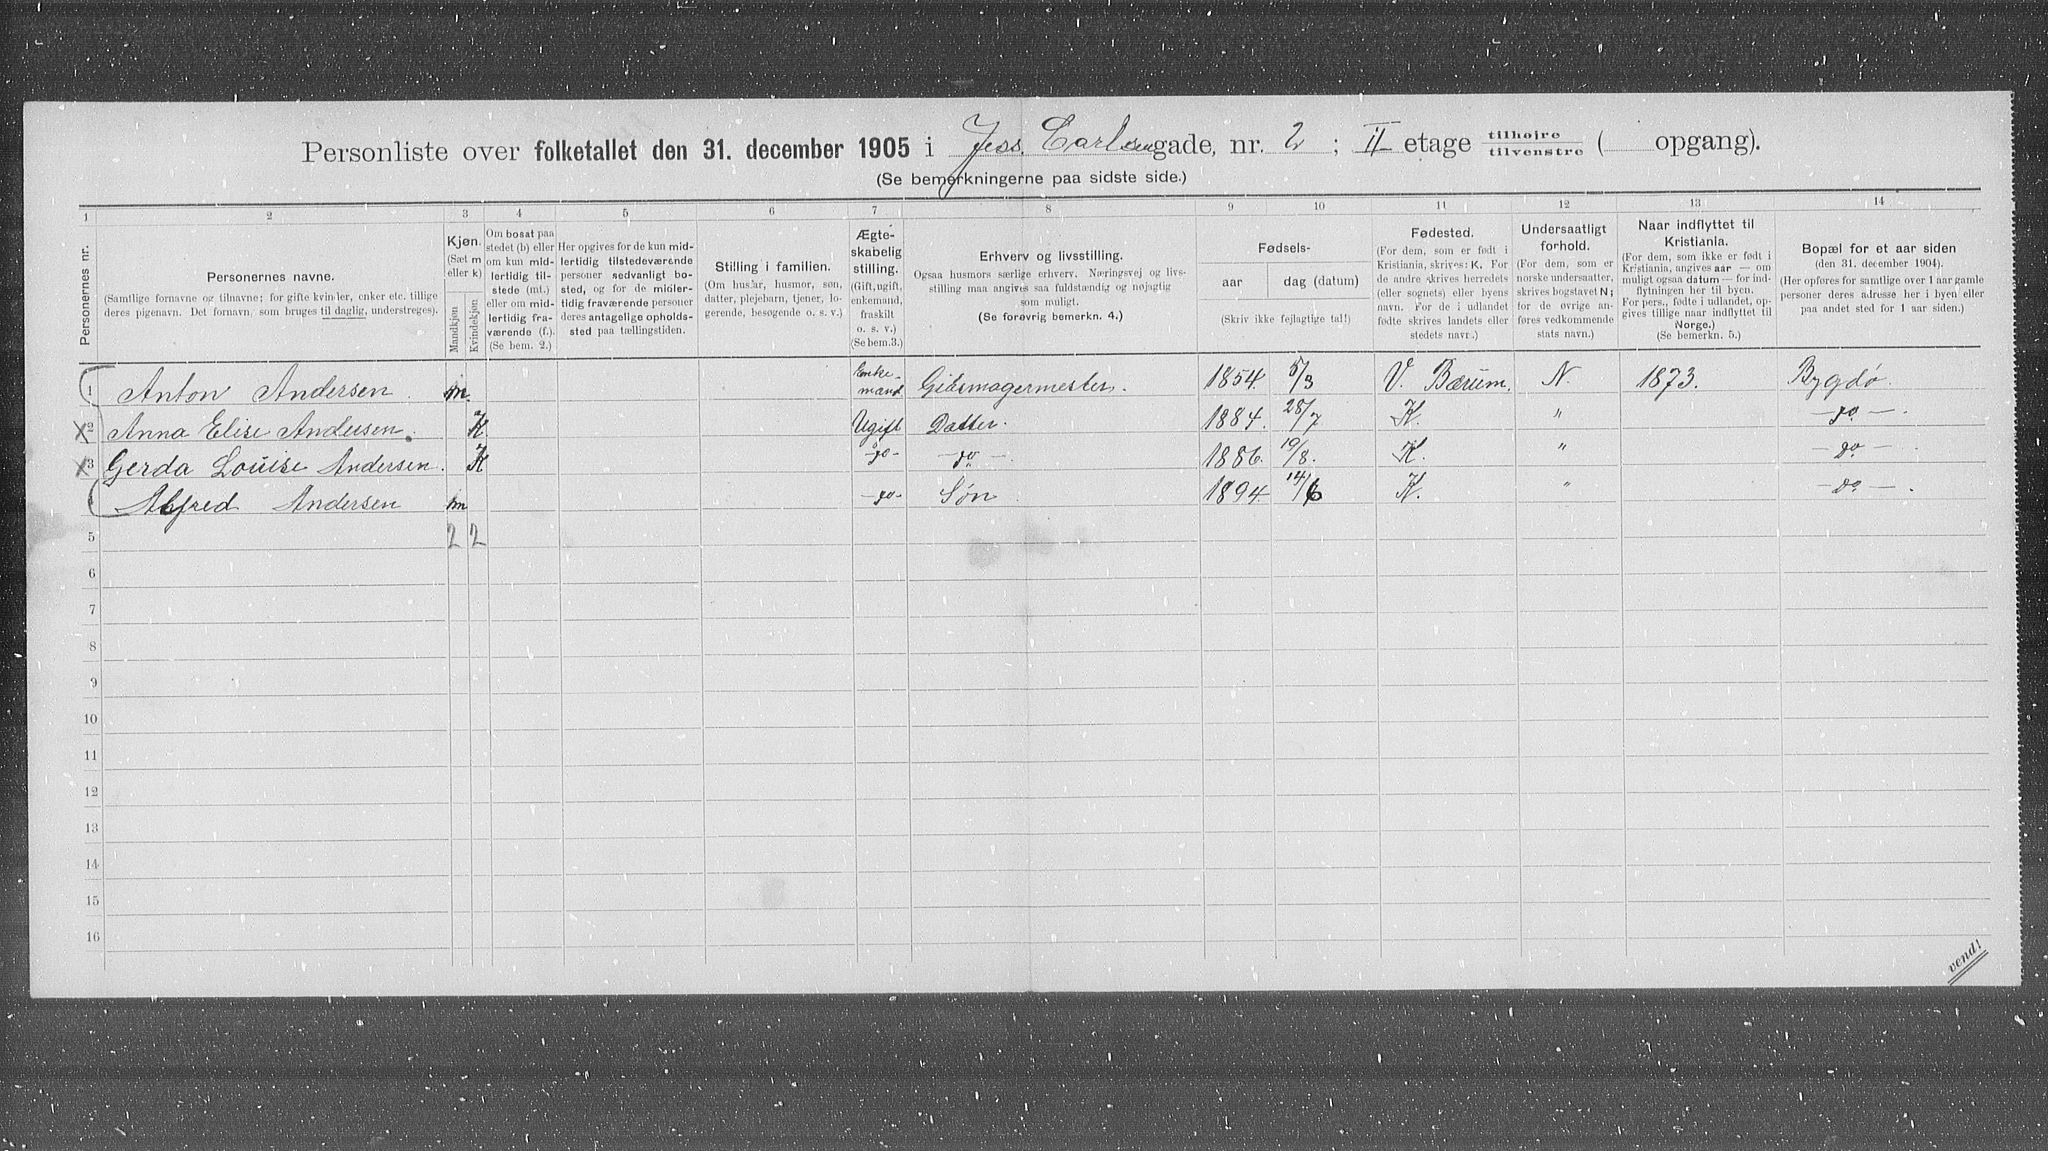 Personliste over folketallet den 31. december 1905 i Jess. Carlsensgade, nr. 2 ; II etage tilhøire tilvenstre ( opgang).
(Se bemerkningerne paa sidste side.)
1 2 3 4 5 6 7 8 9 10 11 12 13 14
Personernes nr.
Personernes navne.
(Samtlige fornavne og tilnavne; for gifte kvinder, enker etc. tillige
deres pigenavn. Det fornavn, som bruges til daglig, understreges).
Kjøn.
(Sæt m
eller k)
Mandkjøn
Kvindekjøn
Om bosat paa
stedet (b) eller
om kun mid-
lertidig til-
stede (mt.)
eller om mid-
lertidig fra-
værende (f.).
(Se bem. 2.)
Her opgives for de kun mid-
lertidig tilstedeværende
personer sedvanligt bo-
sted, og for de midler-
tidig fraværende personer
deres antagelige opholds-
sted paa tællingstiden.
Stilling i familien.
(Om husfar, husmor, søn,
datter, plejebarn, tjener, lo-
gerende, besøgende o. s. v.)
Ægte-
skabelig
stilling.
(Gift, ugift,
enkemand,
fraskilt
o. s. v.)
(Se bem.3.)
Erhverv og livsstilling.
Ogsaa husmors særlige erhverv. Næringsvej og livs-
stilling maa angives saa fuldstændig og nøjagtig
som muligt.
(Se forøvrig bemerkn. 4.)
Fødsels-
aar dag (datum)
(Skriv ikke fejlagtige tal!)
Fødested.
(For dem, som er født i
Kristiania, skrives: K. For
de andre skrives herredets
(eller sognets) eller byens
navn. For de i udlandet
fødte skrives landets eller
stedets navn.)
Undersaatligt
forhold.
(For dem, som er
norske undersaatter,
skrives bogstavet N;
for de øvrige an-
føres vedkommende
stats navn.)
Naar indflyttet til
Kristiania.
(For dem, som ikke er født i
Kristiania, angives aar — om
muligt ogsaa datum — for ind-
flytningen her til byen.
For pers., fødte i udlandet, op-
gives tillige naar indflyttet til
Norge.)
(Se bemerkn. 5.)
Bopæl for et aar siden
(den 31. december 1904).
(Her opføres for samtlige over 1 aar gamle
personer deres adresse her i byen eller
paa andet sted for 1 aar siden.)
1 Anton Andersen. m. Enke-mand Gibsmagermester. 1854 5/3 V. Bærum. N. 1873. Bygdø.
2 Anna Elise Andersen. K Ugift Datter. 1884. 28/7 K. " — do —.
3 Gerda Louise Andersen. K - do - — do — 1886. 19/8. K. " — do —
4 Alfred Andersen m - do - Søn 1894. 14/6 K. " — do — .
5 2 2
6
7
8
9
10
11
12
13
14
15
16
vend!